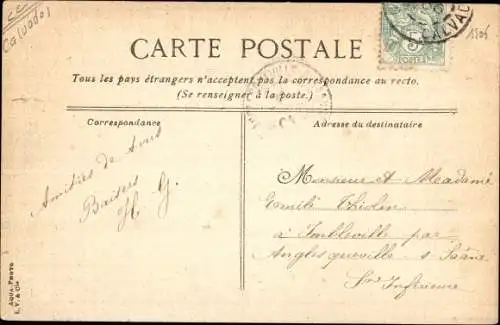 Calvados
1506
CALVAD
CARTE POSTALE
Tous les pays étrangers n'acceptent pas la correspondance au recto.
(Se renseigner à la poste.)
Correspondance
Adresse du destinataire
Amitiés de tous
Baisers
H G.
Monsieur et Madame
Emile Thiolin
à Imbleville par
Anglesqueville s Saâne
Sne Inférieure
AQUA-PHOTO
L. V. & Cie